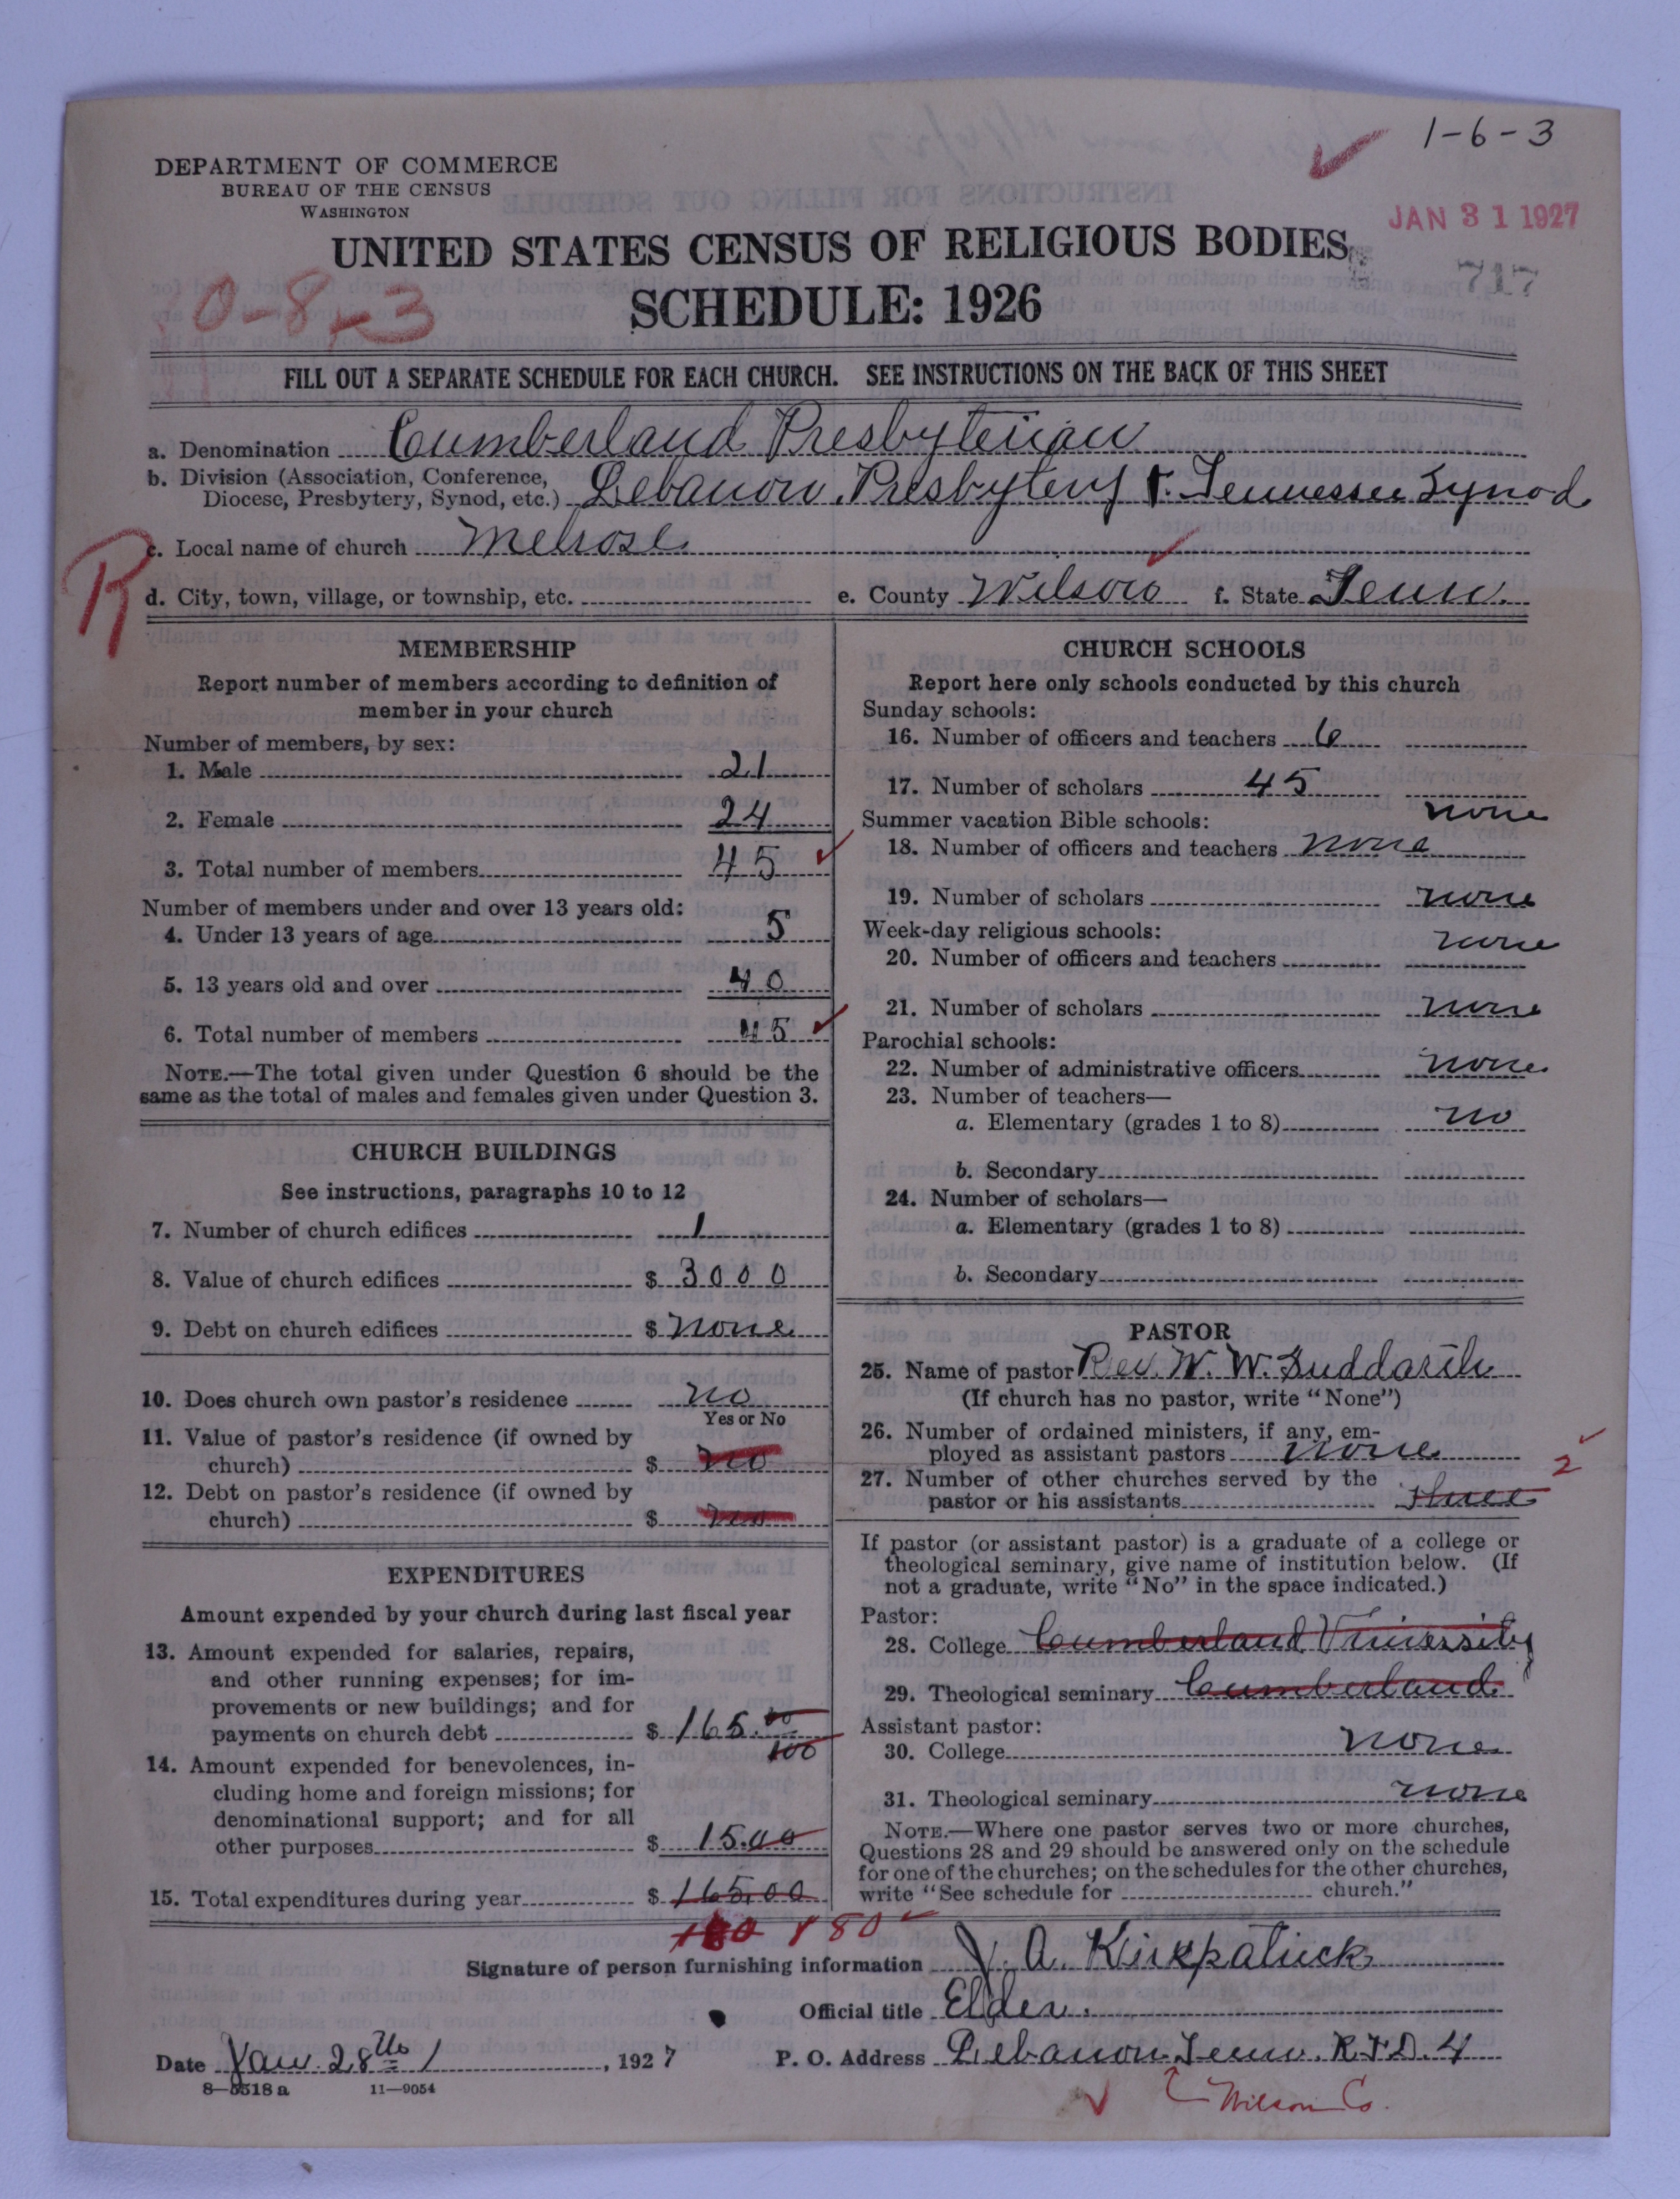 1-6-3
DEPARTMENT OF COMMERCE
BUREAU OF THE CENSUS
WASHINGTON
JAN 31 1927
UNITED STATES CENSUS OF RELIGIOUS BODIES
717
0-8-3
SCHEDULE: 1926
FILL OUT A SEPARATE SCHEDULE FOR EACH CHURCH. SEE INSTRUCTIONS ON THE BACK OF THIS SHEET
a. Denomination Cumberland Presbyterian
b. Division (Association, Conference,
Diocese, Presbytery, Synod, etc.) Lebanon Presbytery Tennessee Synod
R
c. Local name of church Melrose
d. City, town, village, or township, etc. e. County Wilson f. State Tenn.
MEMBERSHIP
Report number of members according to definition of
member in your church
Number of members, by sex:
1. Male 21
2. Female 24
3. Total number of members 45
Number of members under and over 13 years old:
4. Under 13 years of age 5
5. 13 years old and over 40
6. Total number of members 45
NOTE.—The total given under Question 6 should be the
same as the total of males and females given under Question 3.
CHURCH BUILDINGS
See instructions, paragraphs 10 to 12
7. Number of church edifices 1
8. Value of church edifices $ 3000
9. Debt on church edifices $ none
10. Does church own pastor's residence no
Yes or No
11. Value of pastor's residence (if owned by
church) $ no
12. Debt on pastor's residence (if owned by
church) $ no
EXPENDITURES
Amount expended by your church during last fiscal year
13. Amount expended for salaries, repairs,
and other running expenses; for im-
provements or new buildings; and for
payments on church debt $ 165.00
100
14. Amount expended for benevolences, in-
cluding home and foreign missions; for
denominational support; and for all
other purposes $ 15.00
15. Total expenditures during year $ 165.00
180 180
CHURCH SCHOOLS
Report here only schools conducted by this church
Sunday schools:
16. Number of officers and teachers 6
17. Number of scholars 45
none
Summer vacation Bible schools:
18. Number of officers and teachers none
19. Number of scholars none
Week-day religious schools:
20. Number of officers and teachers none
21. Number of scholars none
Parochial schools:
22. Number of administrative officers none
23. Number of teachers—
a. Elementary (grades 1 to 8) no
b. Secondary
24. Number of scholars—
a. Elementary (grades 1 to 8)
b. Secondary
PASTOR
25. Name of pastor Rev. W. W. Suddarth
(If church has no pastor, write "None")
26. Number of ordained ministers, if any, em-
ployed as assistant pastors none
27. Number of other churches served by the
pastor or his assistants three 2
If pastor (or assistant pastor) is a graduate of a college or
theological seminary, give name of institution below. (If
not a graduate, write "No" in the space indicated.)
Pastor:
28. College Cumberland University
29. Theological seminary Cumberland
Assistant pastor:
30. College none
31. Theological seminary none
NOTE.—Where one pastor serves two or more churches,
Questions 28 and 29 should be answered only on the schedule
for one of the churches; on the schedules for the other churches,
write "See schedule for church."
Signature of person furnishing information J. A. Kirkpatrick
Official title Elder.
Date Jan. 28th, 1927 P. O. Address Lebanon Tenn. R.F.D. 4
8—5518 a 11—9054
Wilson Co.